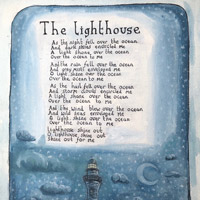 The Lighthouse
As the night fell over the ocean
And dark skies encircled me
A light shone over the ocean
Over the ocean to me
And the rain fell over the ocean
And grey mist enveloped me
A light shone over the ocean
Over the ocean to me
As the hail fell over the ocean
And storm clouds encircled me
A light shone over the ocean
Over the ocean to me
And the wind blew over the ocean
And wild seas enraged me
A light shone over the ocean
Over the ocean to me
Lighthouse shine out
O lighthouse shine out
Shine out for me